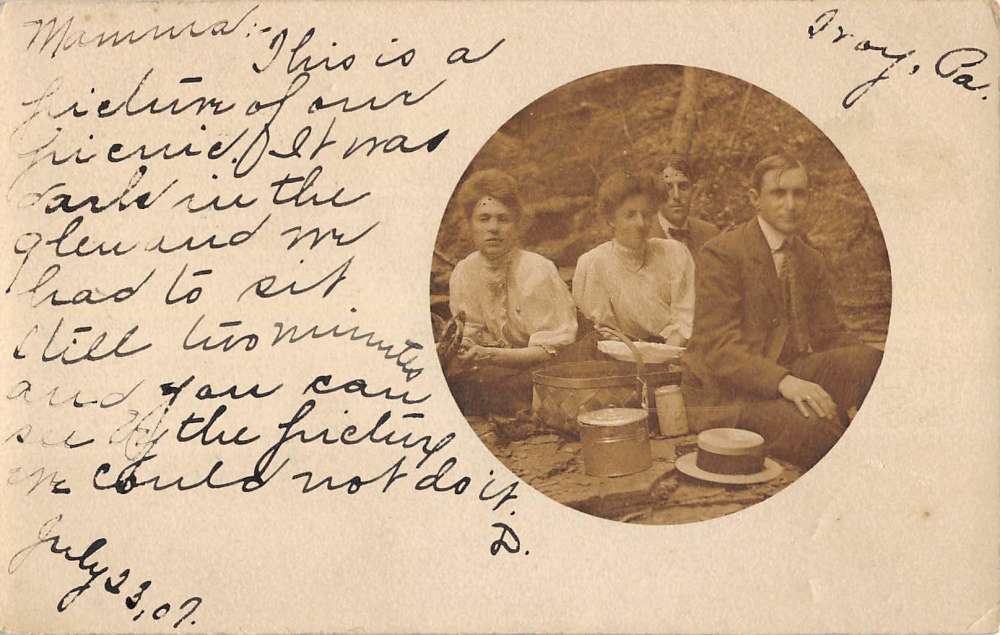 Mamma:-
This is a
picture of our
picnic. It was
dark in the
glen and we
had to sit
still two minutes
and you can
see by the picture
we could not do it.
D.
July 23, 07.
Troy, Pa.